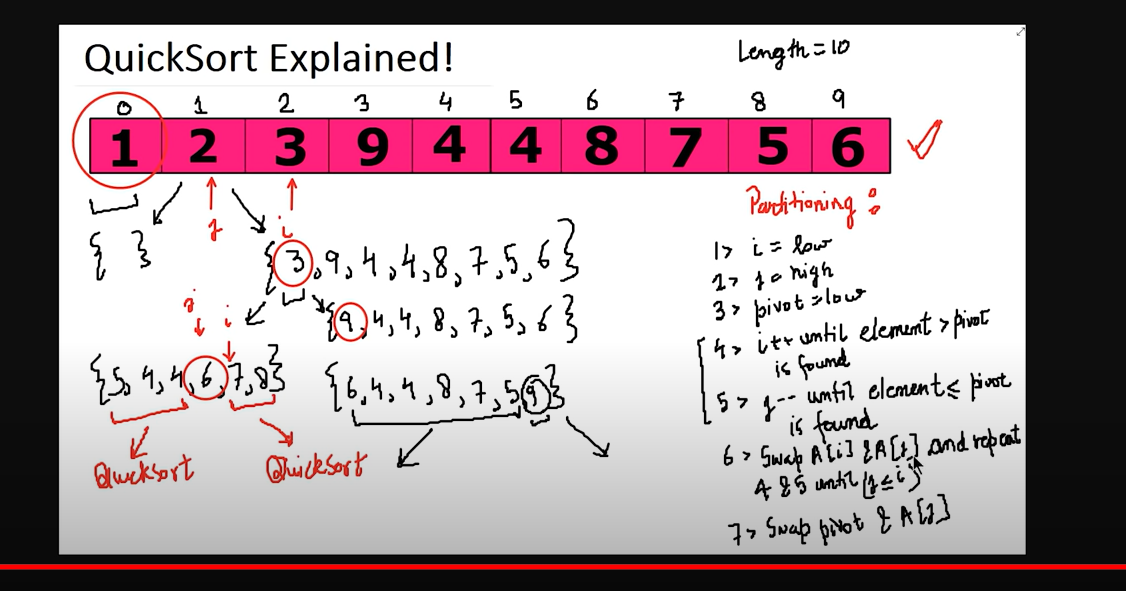 QuickSort Explained!
Length = 10
0 1 2 3 4 5 6 7 8 9
1 2 3 9 4 4 8 7 5 6
j i
{ }
{3,9,4,4,8,7,5,6}
j i
{9,4,4,8,7,5,6}
{5,4,4,6,7,8}
{6,4,4,8,7,5,9}
Quicksort Quicksort
Partitioning :
1> i = low
2> j = high
3> pivot = low
4> i++ until element > pivot
is found
5> j-- until element ≤ pivot
is found
6> Swap A[i] & A[j] and repeat
4 & 5 until (j ≤ i)
7> Swap pivot & A[j]